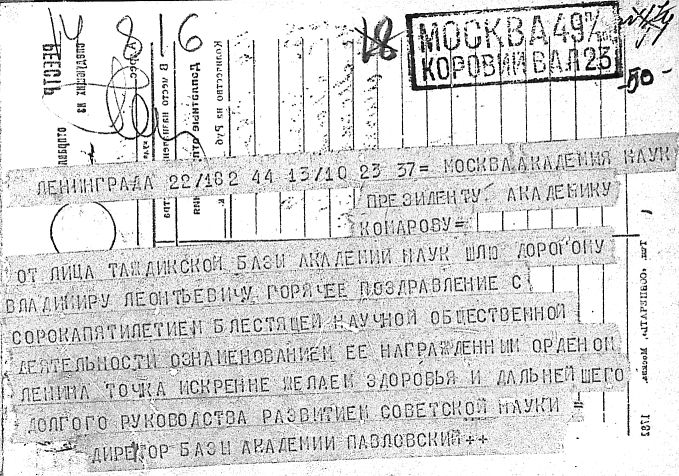 МОСКВА 49
КОРОВИЙ ВАЛ 23
ЛЕНИНГРАДА 22/182 44 13/10 23 37= МОСКВА АКАДЕМИЯ НАУК
ПРЕЗИДЕНТУ АКАДЕМИКУ
КОМАРОВУ=
ОТ ЛИЦА ТАДЖИКСКОЙ БАЗЫ АКАДЕМИИ НАУК ШЛЮ ДОРОГОМУ
ВЛАДИМИРУ ЛЕОНТЬЕВИЧУ ГОРЯЧЕЕ ПОЗДРАВЛЕНИЕ С
СОРОКАПЯТИЛЕТИЕМ БЛЕСТЯЩЕЙ НАУЧНОЙ ОБЩЕСТВЕННОЙ
ДЕЯТЕЛЬНОСТИ ОЗНАМЕНОВАНИЕМ ЕЕ НАГРАЖДЕННЫМ ОРДЕНОМ
ЛЕНИНА ТОЧКА ИСКРЕННЕ ЖЕЛАЕМ ЗДОРОВЬЯ И ДАЛЬНЕЙШЕГО
ДОЛГОГО РУКОВОДСТВА РАЗВИТИЕМ СОВЕТСКОЙ НАУКИ =
ДИРЕКТОР БАЗЫ АКАДЕМИИ ПАВЛОВСКИЙ++